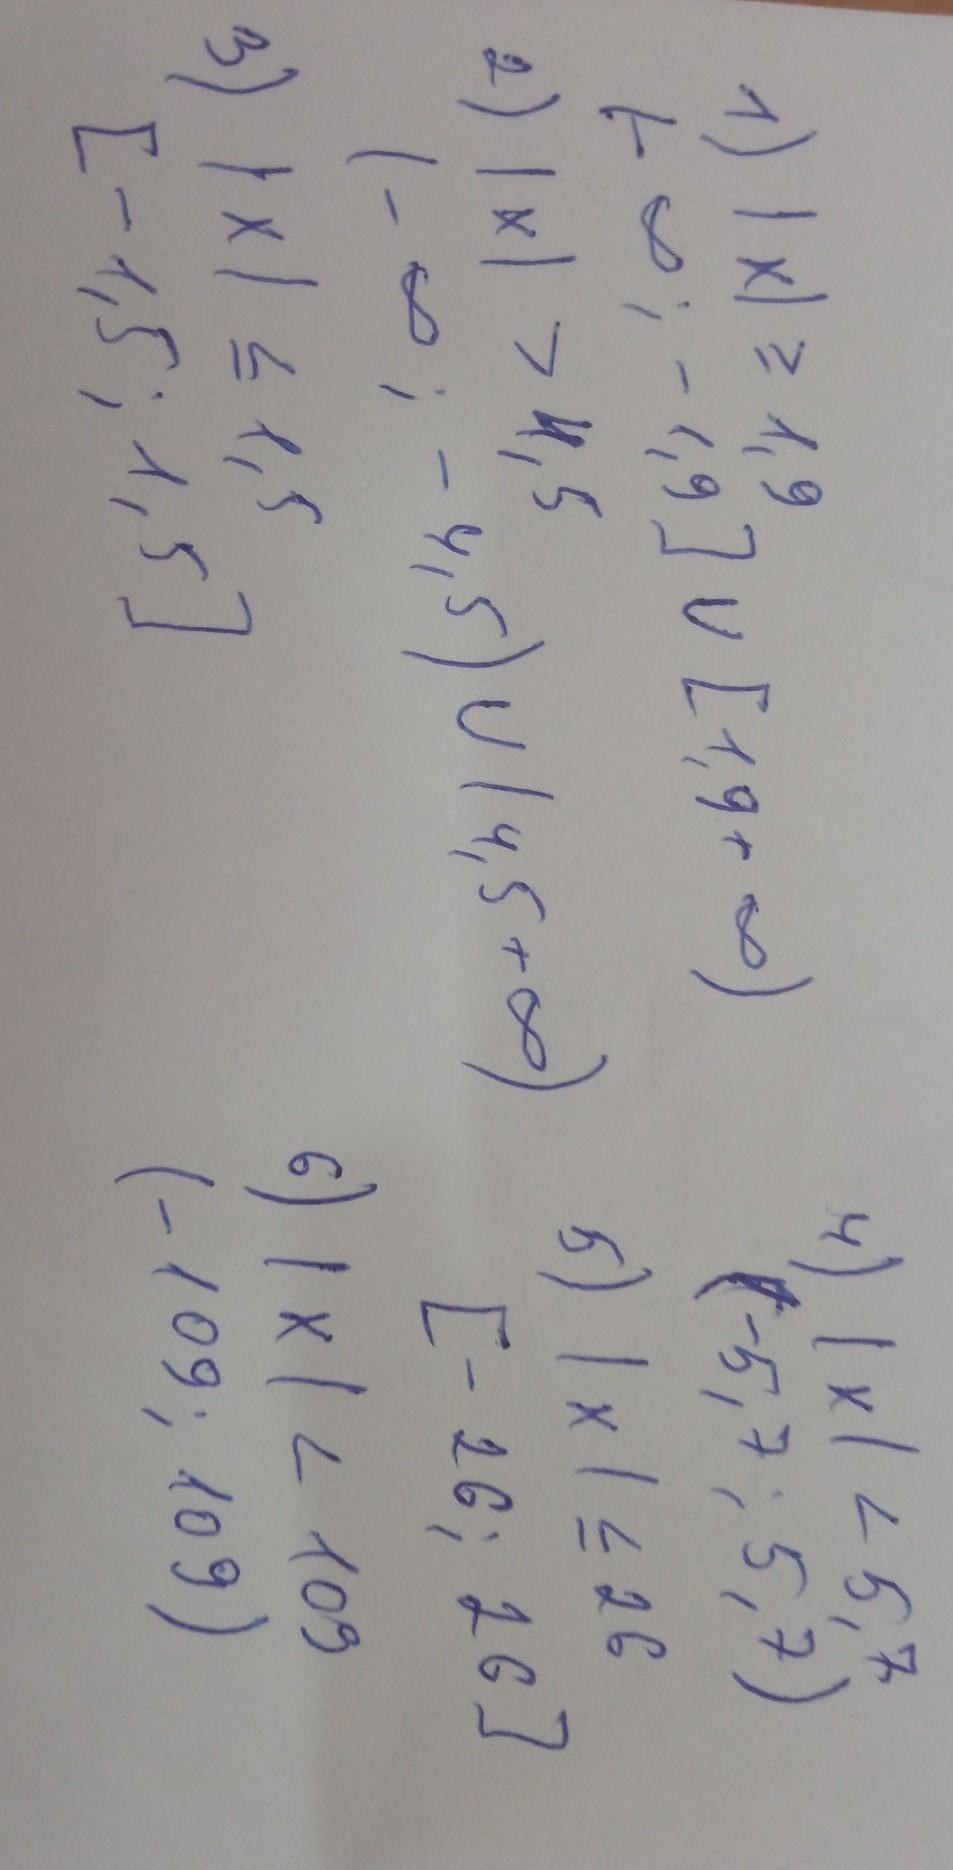 1) |x| ≥ 1,9
(-∞; -1,9] ∪ [1,9+∞)
2) |x| > 4,5
(-∞; -4,5) ∪ (4,5+∞)
3) |x| ≤ 1,5
[-1,5; 1,5]
4) |x| < 5,7
(-5,7; 5,7)
5) |x| ≤ 26
[-26; 26]
6) |x| < 109
(-109; 109)